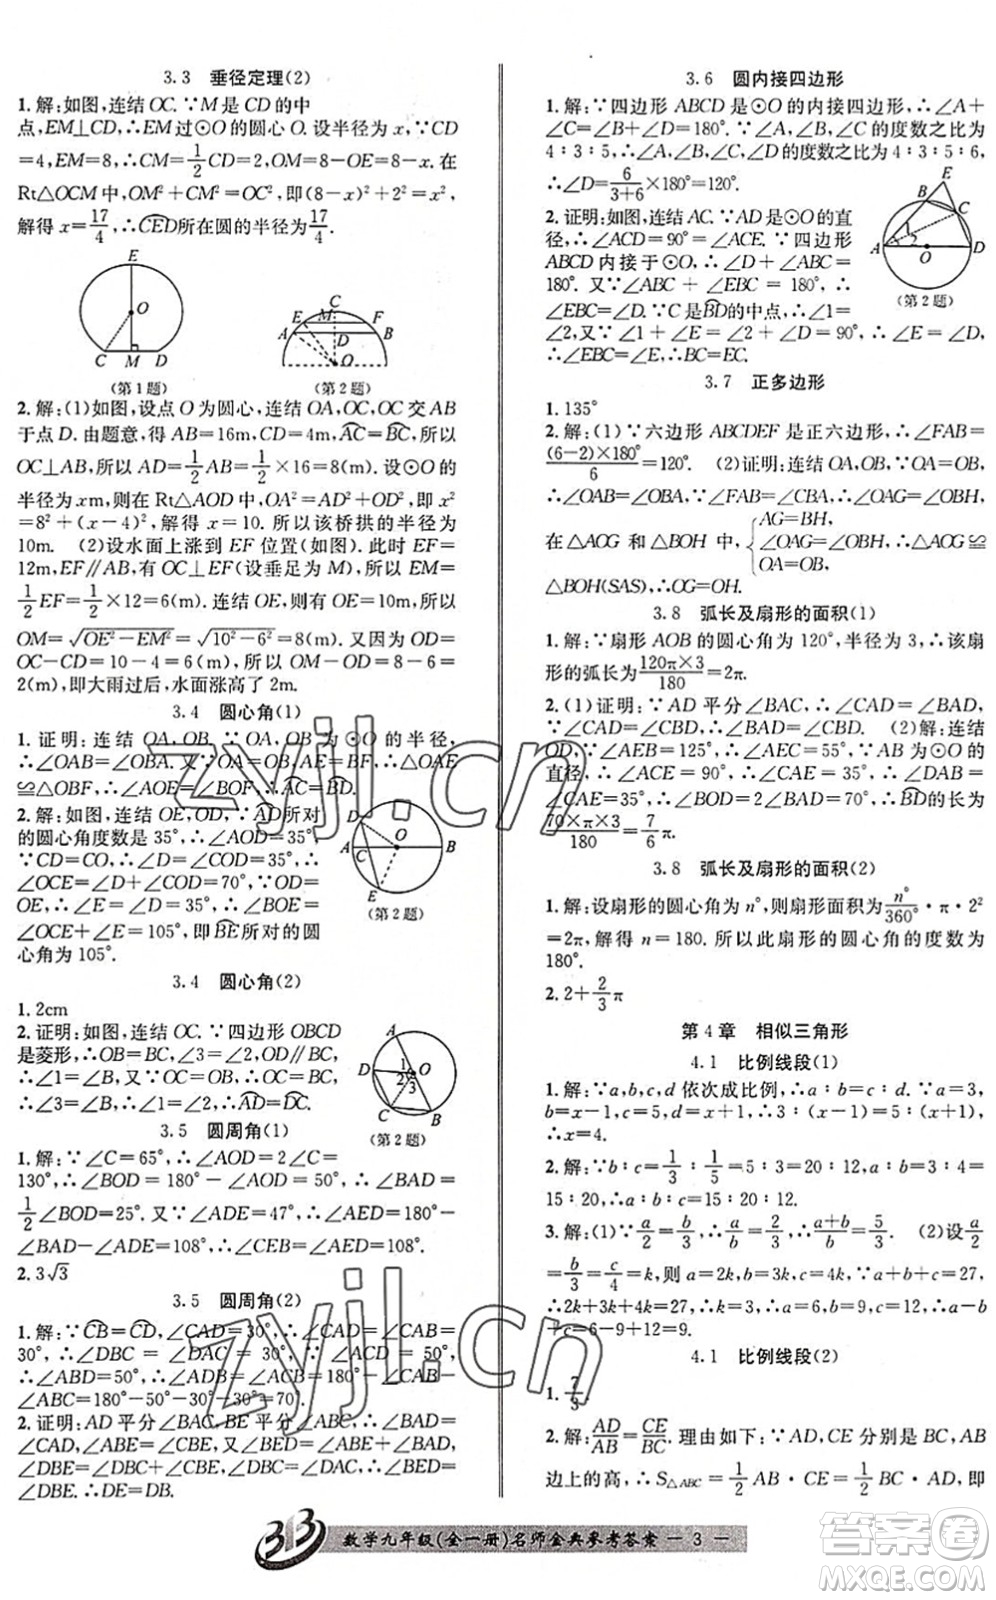 3.3 垂径定理(2)
1.解:如图,连结OC.∵M是CD的中
点,EM⊥CD,∴EM过⊙O的圆心O.设半径为x,∵CD
=4,EM=8,∴CM=1/2CD=2,OM=8-OE=8-x.在
Rt△OCM中,OM²+CM²=OC²,即(8-x)²+2²=x²,
解得x=17/4,∴CED所在圆的半径为17/4.
E
O
C M D
(第1题)
C
E M F
A D B
O
(第2题)
2.解:(1)如图,设点O为圆心,连结OA,OC,OC交AB
于点D.由题意,得AB=16m,CD=4m,AC=BC,所以
OC⊥AB,所以AD=1/2AB=1/2×16=8(m).设⊙O的
半径为xm,则在Rt△AOD中,OA²=AD²+OD²,即x²
=8²+(x-4)²,解得x=10.所以该桥拱的半径为
10m. (2)设水面上涨到EF位置(如图).此时EF=
12m,EF∥AB,有OC⊥EF(设垂足为M),所以EM=
1/2EF=1/2×12=6(m).连结OE,则有OE=10m,所以
OM=√OE²-EM²=√10²-6²=8(m).又因为OD=
OC-CD=10-4=6(m),所以OM-OD=8-6=
2(m),即大雨过后,水面涨高了2m.
3.4 圆心角(1)
1.证明:连结OA,OB.∵OA,OB为⊙O的半径,
∴∠OAB=∠OBA.又∵OA=OB,AE=BF,∴△OAE
≌△OBF,∴∠AOE=∠BOF,∴AC=BD.
2.解:如图,连结OE,OD,∵AD所对
的圆心角度数是35°,∴∠AOD=35°.
∵CD=CO,∴∠D=∠COD=35°,
∴∠OCE=∠D+∠COD=70°,∵OD=
OE,∴∠E=∠D=35°,∴∠BOE=
∠OCE+∠E=105°,即BE所对的圆
心角为105°.
D
A C O B
E
(第2题)
3.4 圆心角(2)
1.2cm
2.证明:如图,连结OC.∵四边形OBCD
是菱形,∴OB=BC,∠3=∠2,OD∥BC,
∴∠1=∠B.又∵OC=OB=BC,∴∠3=
∠B,∴∠1=∠2,∴AD=DC.
A
D 1 O
2 3
C B
(第2题)
3.5 圆周角(1)
1.解:∵∠C=65°,∴∠AOD=2∠C=
130°,∴∠BOD=180°-∠AOD=50°,∴∠BAD=
1/2∠BOD=25°.又∵∠ADE=47°,∴∠AED=180°-
∠BAD-∠ADE=108°,∴∠CEB=∠AED=108°.
2.3√3
3.5 圆周角(2)
1.解:∵CB=CD,∠CAD=30°,∴∠CAB=∠CAD=
30°,∴∠DBC=∠DAC=30°.∵∠ACD=50°,
∴∠ABD=50°,∴∠ACB=∠ADB=180°-∠CAB-
∠ABC=180°-50°-30°-30°=70°.
2.证明:AD平分∠BAC,BE平分∠ABC,∴∠BAD=
∠CAD,∠ABE=∠CBE.又∵∠CAD=∠CBD,
∴∠BAD=∠CBD,∴∠DBE=∠CBE+∠CBD,
∠BED=∠ABE+∠BAD,∴∠BED=
∠DBE.∴DB=DE.
3.6 圆内接四边形
1.解:∵四边形ABCD是⊙O的内接四边形,∴∠A+
∠C=∠B+∠D=180°.∵∠A,∠B,∠C的度数之比为
4∶3∶5,∴∠A,∠B,∠C,∠D的度数之比为4∶3∶5∶6,
∴∠D=6/(3+6)×180°=120°.
2.证明:如图,连结AC.∵AD是⊙O的直
径,∴∠ACD=90°=∠ACE.∵四边形
ABCD内接于⊙O,∴∠D+∠ABC=
180°.又∵∠ABC+∠EBC=180°,∴
∠EBC=∠D.∵C是BD的中点,∴∠1=
∠2,又∵∠1+∠E=∠2+∠D=90°,∴∠E=∠D,
∴∠EBC=∠E,∴BC=EC.
E
B C
1
2
A O D
(第2题)
3.7 正多边形
1.135°
2.解:(1)∵六边形ABCDEF是正六边形,∴∠FAB=
(6-2)×180°/6=120°. (2)证明:连结OA,OB,∵OA=OB,
∴∠OAB=∠OBA,∵∠FAB=∠CBA,∴∠OAG=∠OBH,
在△AOG和△BOH中,{AG=BH, ∠OAG=∠OBH, OA=OB, ∴△AOG≌
△BOH(SAS),∴OG=OH.
3.8 弧长及扇形的面积(1)
1.解:∵扇形AOB的圆心角为120°,半径为3,∴该扇
形的弧长为120π×3/180=2π.
2.(1)证明:∵AD平分∠BAC,∴∠CAD=∠BAD,
∵∠CAD=∠CBD,∴∠BAD=∠CBD. (2)解:连结
OD,∵∠AEB=125°,∴∠AEC=55°,∵AB为⊙O的
直径,∴∠ACE=90°,∴∠CAE=35°,∴∠DAB=
∠CAE=35°,∴∠BOD=2∠BAD=70°,∴BD的长为
70×π×3/180=7/6π.
3.8 弧长及扇形的面积(2)
1.解:设扇形的圆心角为n°,则扇形面积为n°/360°·π·2²
=2π,解得n=180.所以此扇形的圆心角的度数为
180°.
2.2+2/3π
第4章 相似三角形
4.1 比例线段(1)
1.解:∵a,b,c,d依次成比例,∴a∶b=c∶d.∵a=3,
b=x-1,c=5,d=x+1,∴3∶(x-1)=5∶(x+1),
∴x=4.
2.解:∵b∶c=1/3∶1/5=5∶3=15∶9,a∶b=4∶3=
20∶15,∴a∶b∶c=20∶15∶9.
3.解:(1)∵a/2=b/3,∴a/b=2/3,∴(a+b)/b=5/3. (2)设a/2=
b/3=c/4=k,则a=2k,b=3k,c=4k.∵a+b+c=27,
∴2k+3k+4k=27,∴k=3,∴a=6,b=9,c=12,
∴a-b+c=6-9+12=9.
4.1 比例线段(2)
1.7/3
2.解:AD/AB=CE/BC.理由如下:∵AD,CE分别是BC,AB
边上的高,∴S△ABC=1/2AB·CE=1/2BC·AD,即
数学九年级(全一册)名师金典参考答案 — 3 —
zyjl.cn
zyjl.cn
作业精灵
MXQE.COM